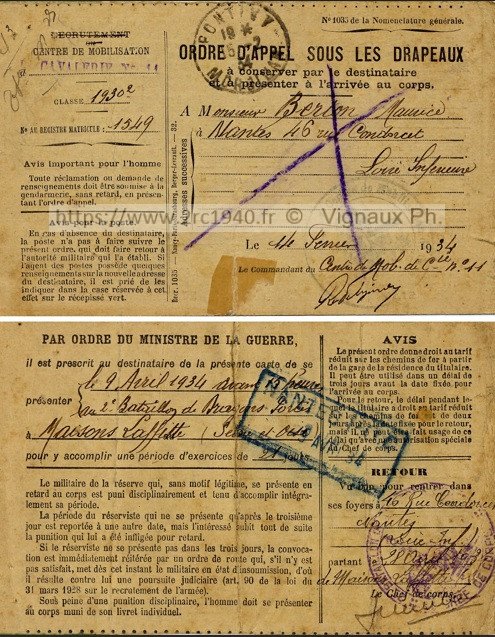 RECRUTEMENT
OU
CENTRE DE MOBILISATION
d
CAVALERIE No. 11
CLASSE 1930²
No AU REGISTRE MATRICULE : 1349
Avis important pour l'homme
Toute réclamation ou demande de
renseignements doit être soumise à la
gendarmerie, sans retard, en présen-
tant l'ordre d'appel.
Avis pour la poste
En cas d'absence du destinataire,
la poste n'a pas à faire suivre le
présent ordre, qui doit faire retour à
l'autorité militaire qui l'a établi. Si
l'agent des postes possède quelques
renseignements sur la nouvelle adresse
du destinataire, il est prié de les
indiquer dans la case réservée à cet
effet sur le récépissé vert.
Adresses successives
PONTIVY
MORBIHAN
No 1035 de la Nomenclature générale.
ORDRE D'APPEL SOUS LES DRAPEAUX
à conserver par le destinataire
et à présenter à l'arrivée au corps.
A Monsieur Berton Maurice
à Nantes 46 rue Condorcet
Loire Inférieure
https://www. rc1940.fr © Vignaux Ph.
Le 14 1934
Le Commandant du Centre de Mob. de Cie no 11
PAR ORDRE DU MINISTRE DE LA GUERRE,
il est prescrit au destinataire de la présente carte de se
présenter
le 9 Avril 1934 avant 15 heures
au 2e Bataillon de Dragons Portés
à Maisons Laffitte Seine et Oise
pour y accomplir une période d'exercices de 21 jours
Le militaire de la réserve qui, sans motif légitime, se présente en
retard au corps est puni disciplinairement et tenu d'accomplir intégrale-
ment sa période.
La période du réserviste qui ne se présente qu'après le troisième
jour est reportée à une autre date, mais l'intéressé subit tout de suite
la punition qui lui a été infligée pour retard.
Si le réserviste ne se présente pas dans les trois jours, la convoca-
tion est immédiatement réitérée par un ordre de route qui, s'il n'y est
pas satisfait, met dès cet instant le militaire en état d'insoumission, d'où
il résulte contre lui une poursuite judiciaire (art. 90 de la loi du
31 mars 1928 sur le recrutement de l'armée).
Sous peine d'une punition disciplinaire, l'homme doit se présenter
au corps muni de son livret individuel.
AVIS
Le présent ordre donne droit au tarif
réduit sur les chemins de fer à partir
de la gare de la résidence du titulaire.
Il peut être utilisé dans un délai de
trois jours avant la date fixée pour
l'arrivée au corps.
Pour le retour, le délai pendant le-
quel le titulaire a droit au tarif réduit
est également de trois jours
après la date fixée pour le retour,
mais il ne peut être fait usage de ce
délai qu'avec l'autorisation spéciale
du Chef de corps.
RETOUR
Vu bon pour rentrer dans
ses foyers 46 Rue Condorcet
Nantes
partant
de Maisons Laffitte
Le Chef de corps,